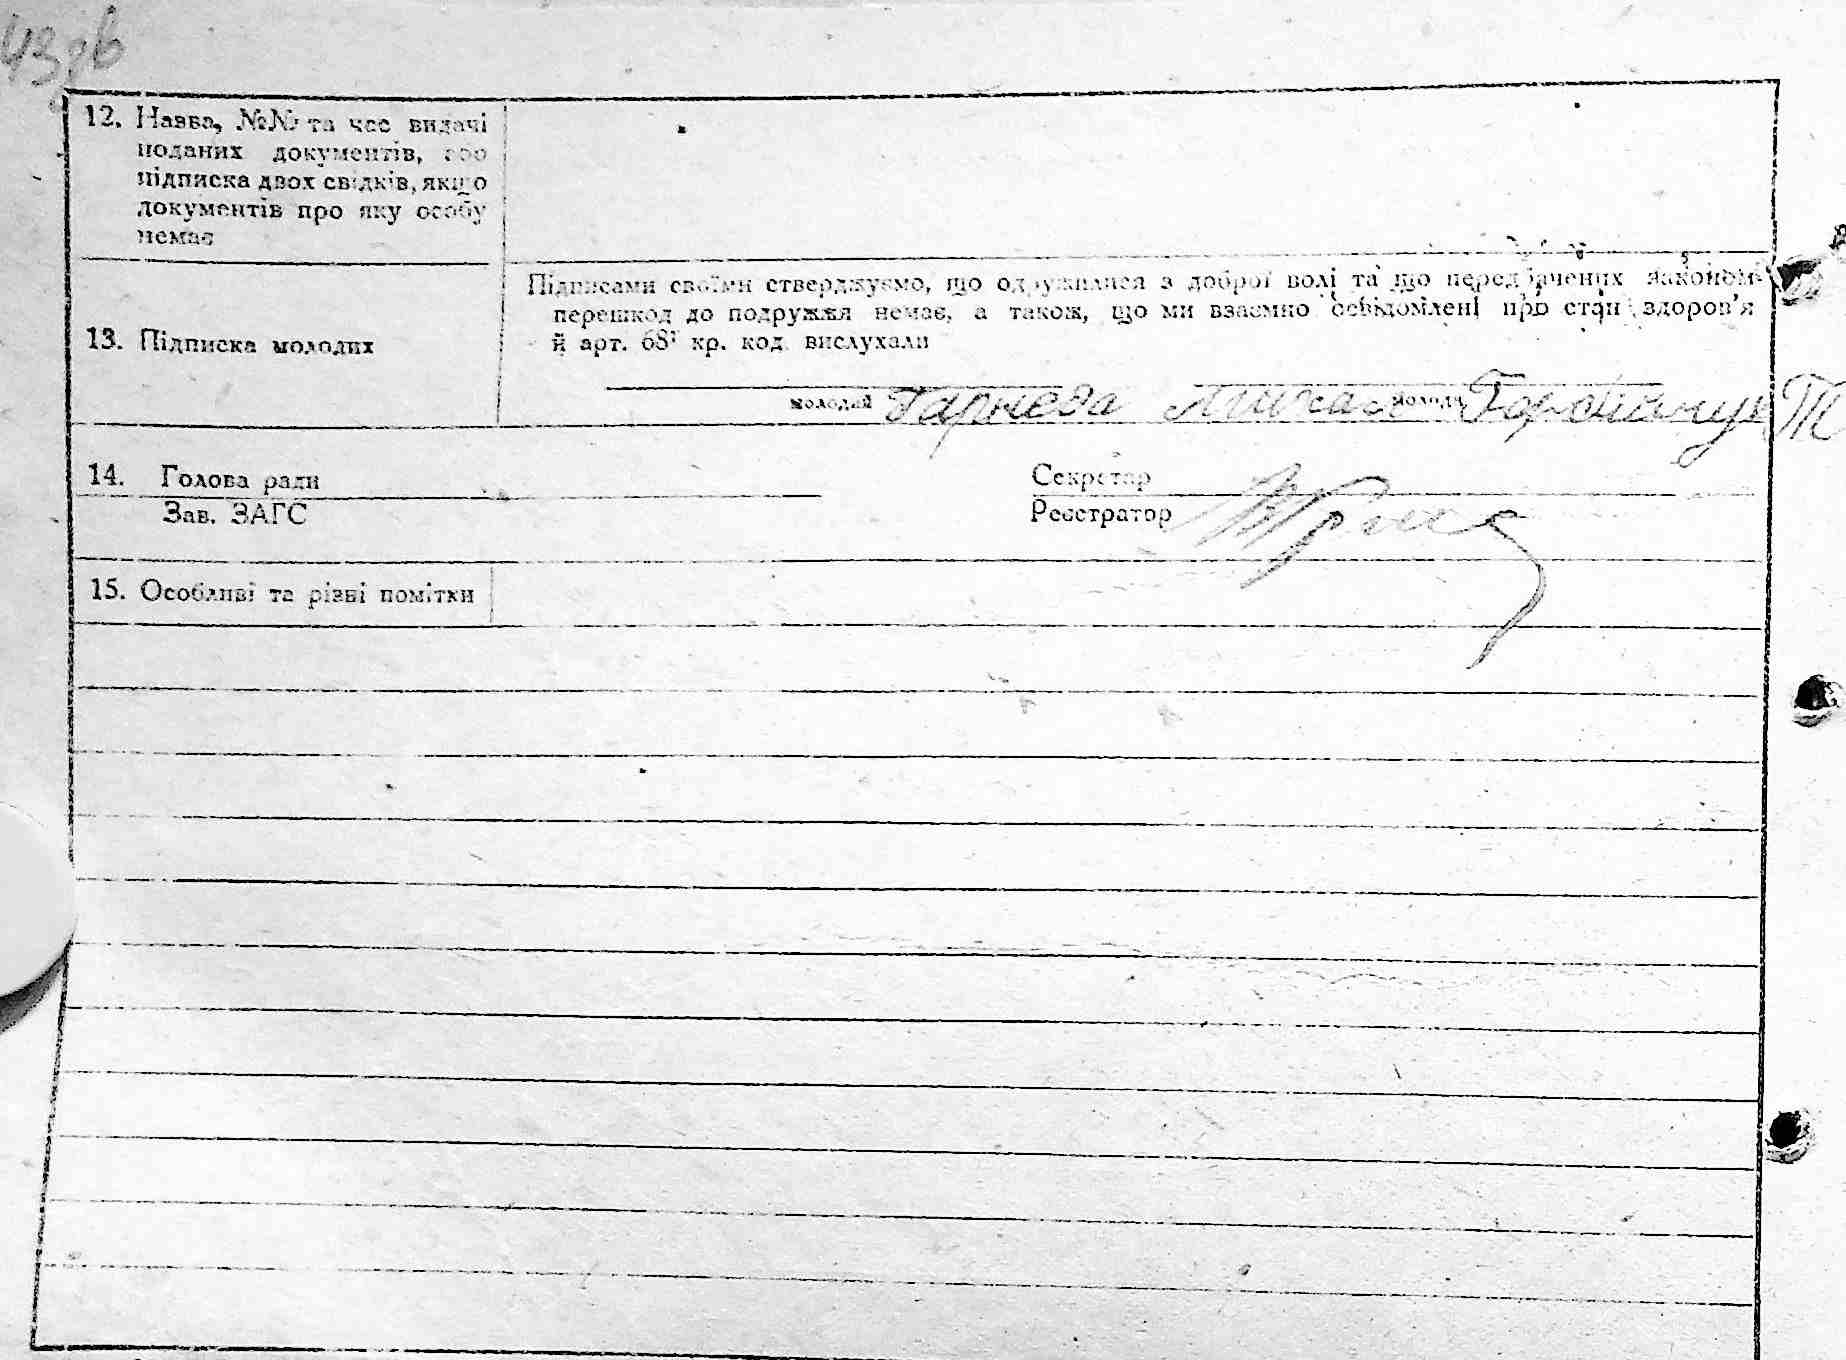 43 зв
12. Назва, №№ та час видачі
поданих документів, або
підписка двох свідків, якщо
документів про яку особу
немає
Підписами своїми стверджуємо, що одружилися з доброї волі та що передбачених законом
перешкод до подружжя немає, а також, що ми взаємно освідомлені про стан здоров'я
й арт. 68¹ кр. код. вислухали
13. Підписка молодих
молодий молода
14. Голова ради Секретар
Зав. ЗАГС Реєстратор
15. Особливі та різні помітки